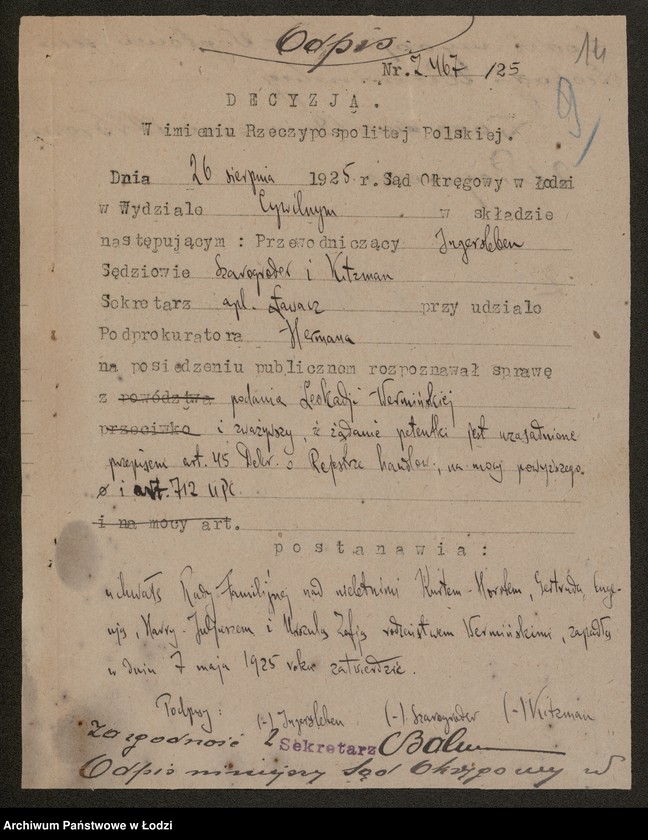 Odpis.
14
Nr. Z 467 /25
9
DECYZJA.
W imieniu Rzeczypospolitej Polskiej.
Dnia 26 sierpnia 1925 r. Sąd Okręgowy w Łodzi
w Wydziale Cywilnym w składzie
następującym : Przewodniczący Ingersleben
Sędziowie Szarogroder i Kitzman
Sekretarz apl. przy udziale
Podprokuratora Hermana
na posiedzeniu publicznom rozpoznawał sprawę
z powództwa podania Leokadji Wermińskiej
przeciwko i zważywszy, że żądanie petentki jest uzasadnione
przepisem art. 45 Dekr. o Rejestrze handlow., na mocy powyższego
i art. 712 UPC.
i na mocy art.
postanawia:
uchwałę Rady Familijnej nad nieletnimi Kurtem-Horstem, Gertrudą Euge-
nją, Harry-Juljuszem i Urszulą Zofją rodzeństwem Wermińskimi, zapadłą
w dniu 7 maja 1925 roku zatwierdzić.
Podpisy: (-) Ingersleben (-) Szarogroder (-) Kitzman
Za zgodność Sekretarz
Odpis niniejszy Sąd Okręgowy w
Archiwum Państwowe w Łodzi